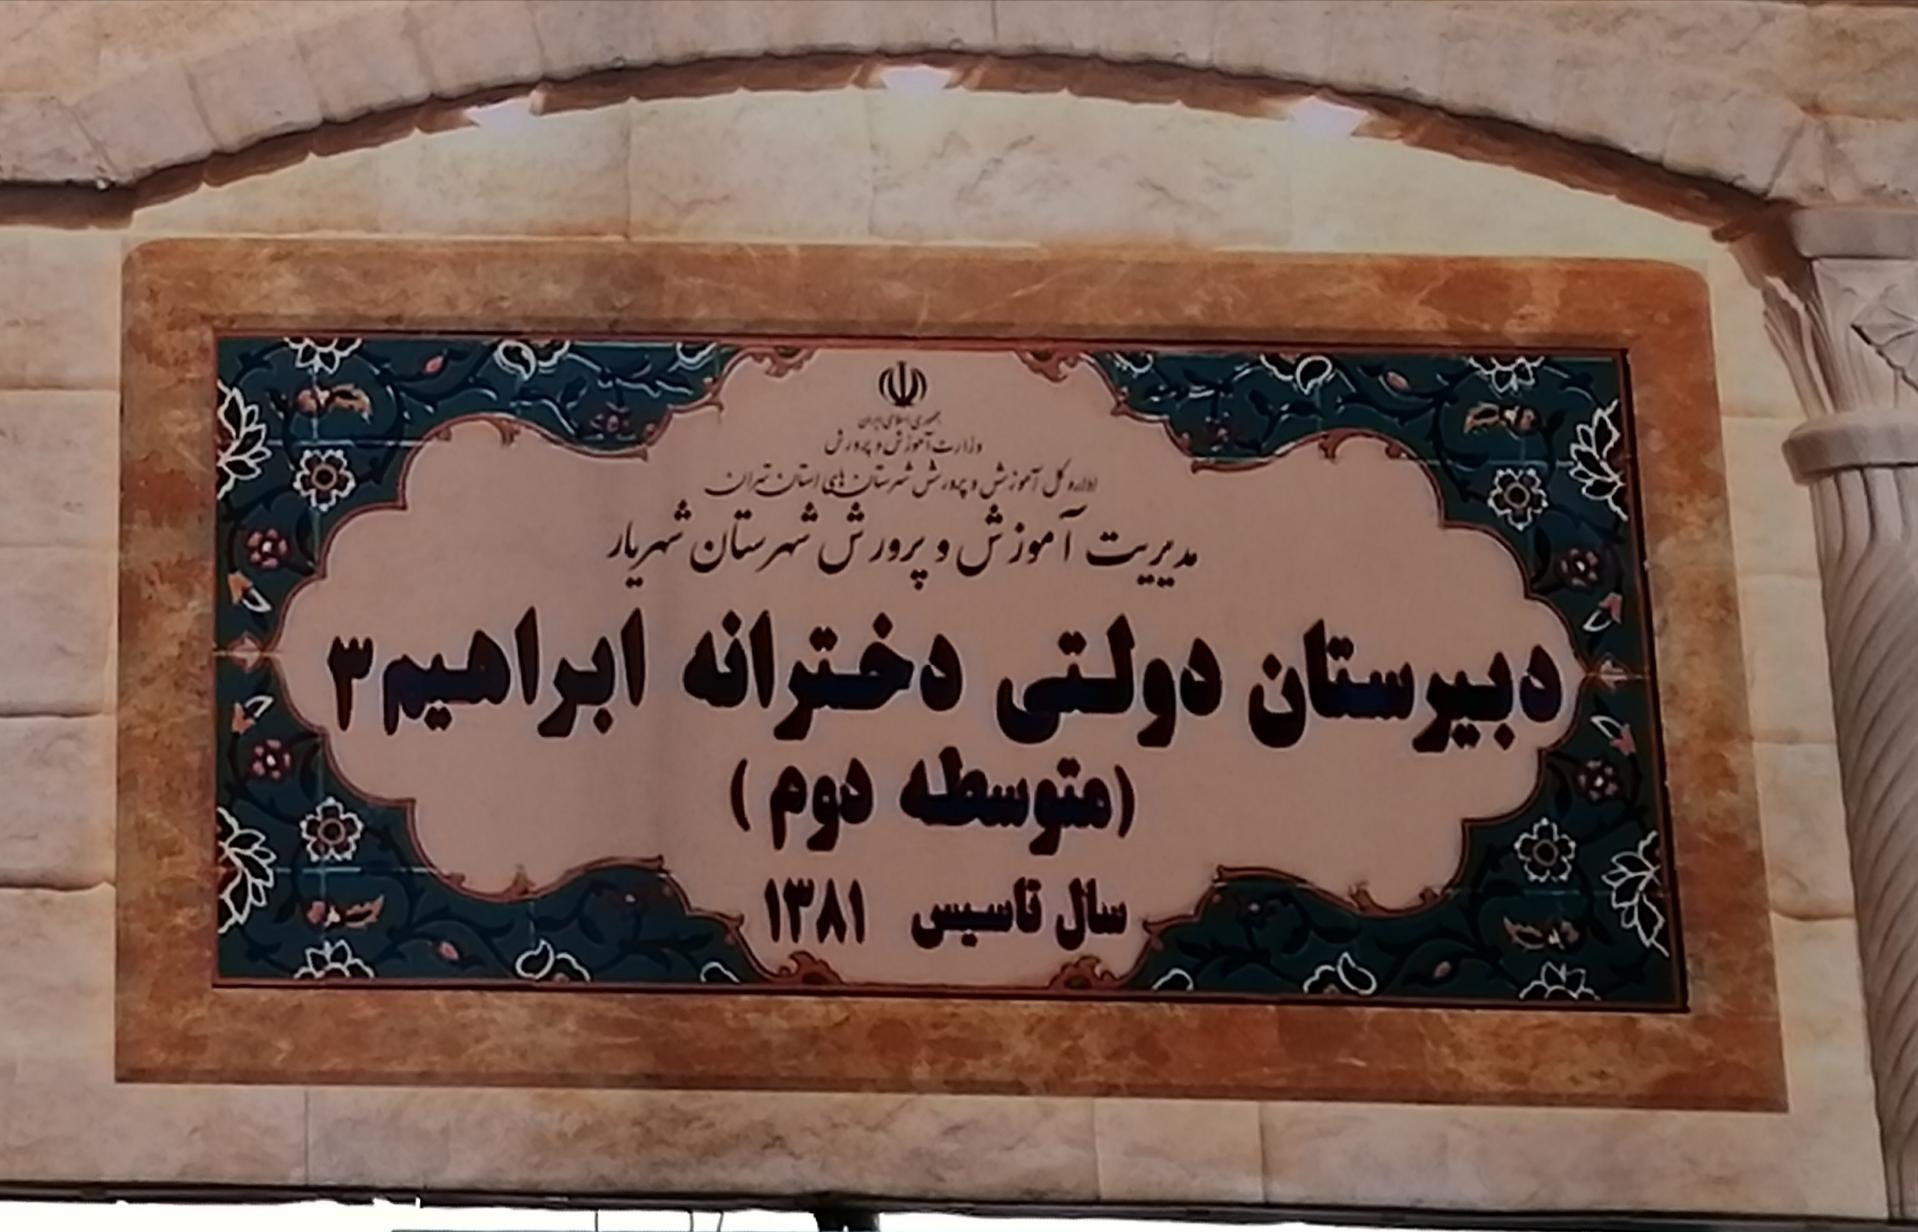 جمهوری اسلامی ایران
وزارت آموزش و پرورش
اداره کل آموزش و پرورش شهرستان های استان تهران
مدیریت آموزش و پرورش شهرستان شهریار
دبیرستان دولتی دخترانه ابراهیم ۳
(متوسطه دوم )
سال تاسیس ۱۳۸۱